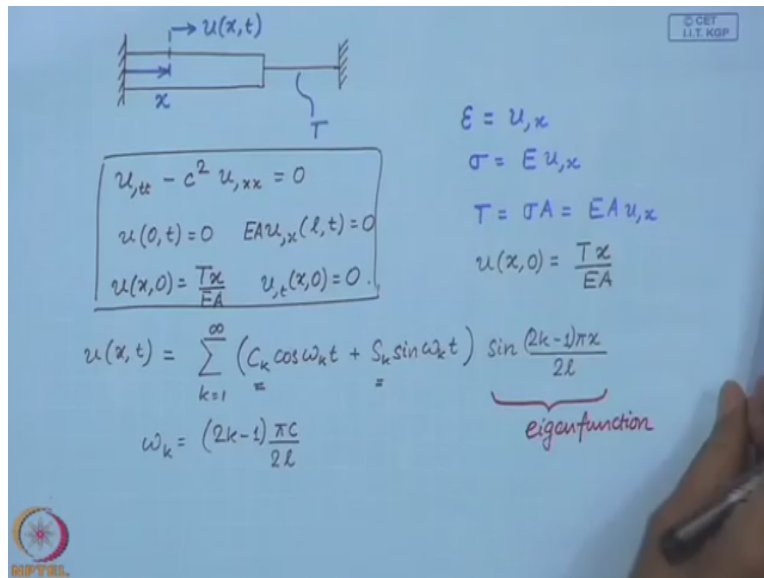 u(x,t)
© CET
I.I.T. KGP
x
T
ε = u,x
σ = E u,x
T = σA = EA u,x
u(x,0) = Tx/EA
u,tt − c² u,xx = 0
u(0,t) = 0 EA u,x(l,t) = 0
u(x,0) = Tx/EA u,t(x,0) = 0.
u(x,t) = ∑_{k=1}^{∞} (C_k cos ω_k t + S_k sin ω_k t) sin (2k-1)πx/2l
eigenfunction
ω_k = (2k-1) πc/2l
NPTEL